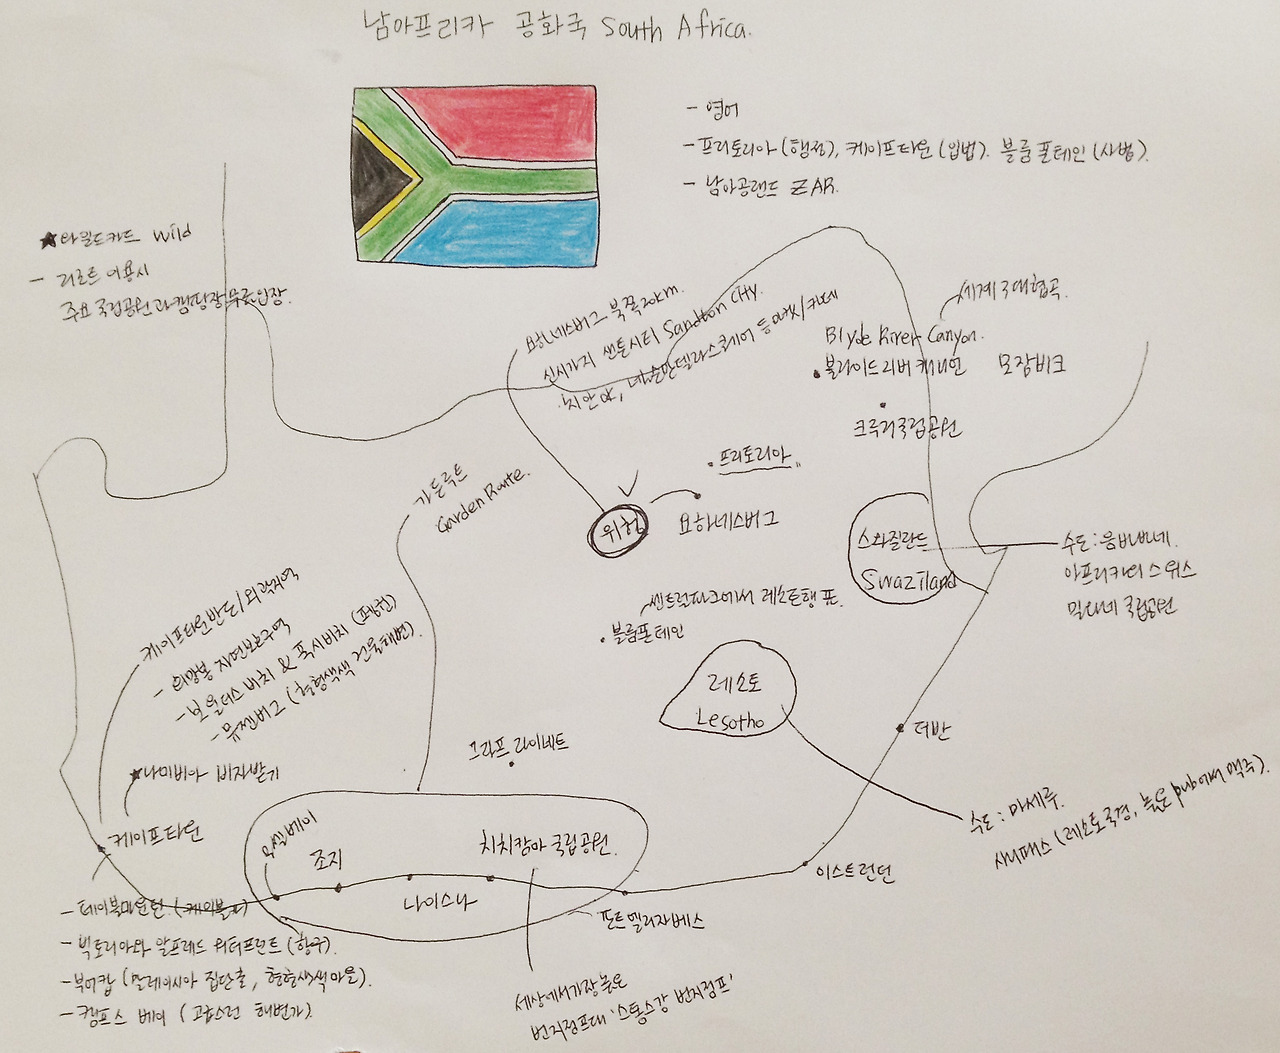 남아프리카 공화국 South Africa.
- 영어
- 프리토리아 (행정), 케이프타운 (입법). 블룸폰테인 (사법).
- 남아공랜드 ZAR.
★와일드카드 Wild
- 리조트 이용시
주요 국립공원과 캠핑장 무료입장.
요하네스버그 북쪽 20km.
신시가지 샌튼시티 Sandton City.
치안 Good, 넬슨만델라스퀘어 등
세계 3대협곡.
Blyde River Canyon.
블라이드리버 캐니언
모잠비크
크루거국립공원
가든루트
Garden Route.
프리토리아
위험
요하네스버그
스와질란드
Swaziland
수도: 음바바네.
아프리카의 스위스
밀와네 국립공원
센트럴파크에서 레소토행
블룸폰테인
레소토
Lesotho
케이프타운반도/외곽지역
- 희망봉 자연보호구역
- 보울더스 비치 & 폭시비치 (펭귄)
- 뮤젠버그 (형형색색 건물해변).
★나미비아 비자받기
케이프타운
그라프 라이네트
더반
수도: 마세루.
사니패스 (레소토국경, 높은 pub에서 맥주).
모셀베이
조지
치치캄마 국립공원.
나이스나
이스트런던
포트엘리자베스
- 테이블마운틴. (케이블카)
- 빅토리아와 알프레드 워터프런트 (항구).
- 보어캅 (말레이시아 집단촌, 형형색색마을).
- 캠프스 베이 (고급스런 해변가).
세상에서가장 높은
번지점프대 '스톰스강 번지점프'